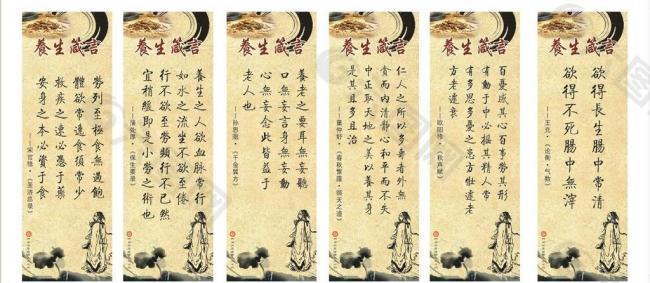 養生箴言
勞列至極食無過飽
體欲常勞食須常少
救疾之速必憑于藥
安身之本必資于食
——宋官修·《圣济总录》
養生箴言
養生之人欲血脉常行
如水之流坐不欲至倦
行不欲至勞頻行不已然
宜稍緩即是小勞之術也
——蒲处厚·《保生要录》
養生箴言
養老之要耳無妄聽
口無妄言身無妄動
心無妄念此皆益于
老人也
——孙思邈·《千金翼方》
養生箴言
仁人之所以多壽者外無
貪而内清静心和平而不失
中正取天地之美以養其身
是其且多且治
——董仲舒·《春秋繁露·循天之道》
養生箴言
百憂感其心百事勞其形
有動于中必摇其精人常
有多思多憂之患方壮遽老
方老遽衰
——欧阳修·《秋声赋》
養生箴言
欲得長生腸中常清
欲得不死腸中無滓
——王充·《论衡·气数》